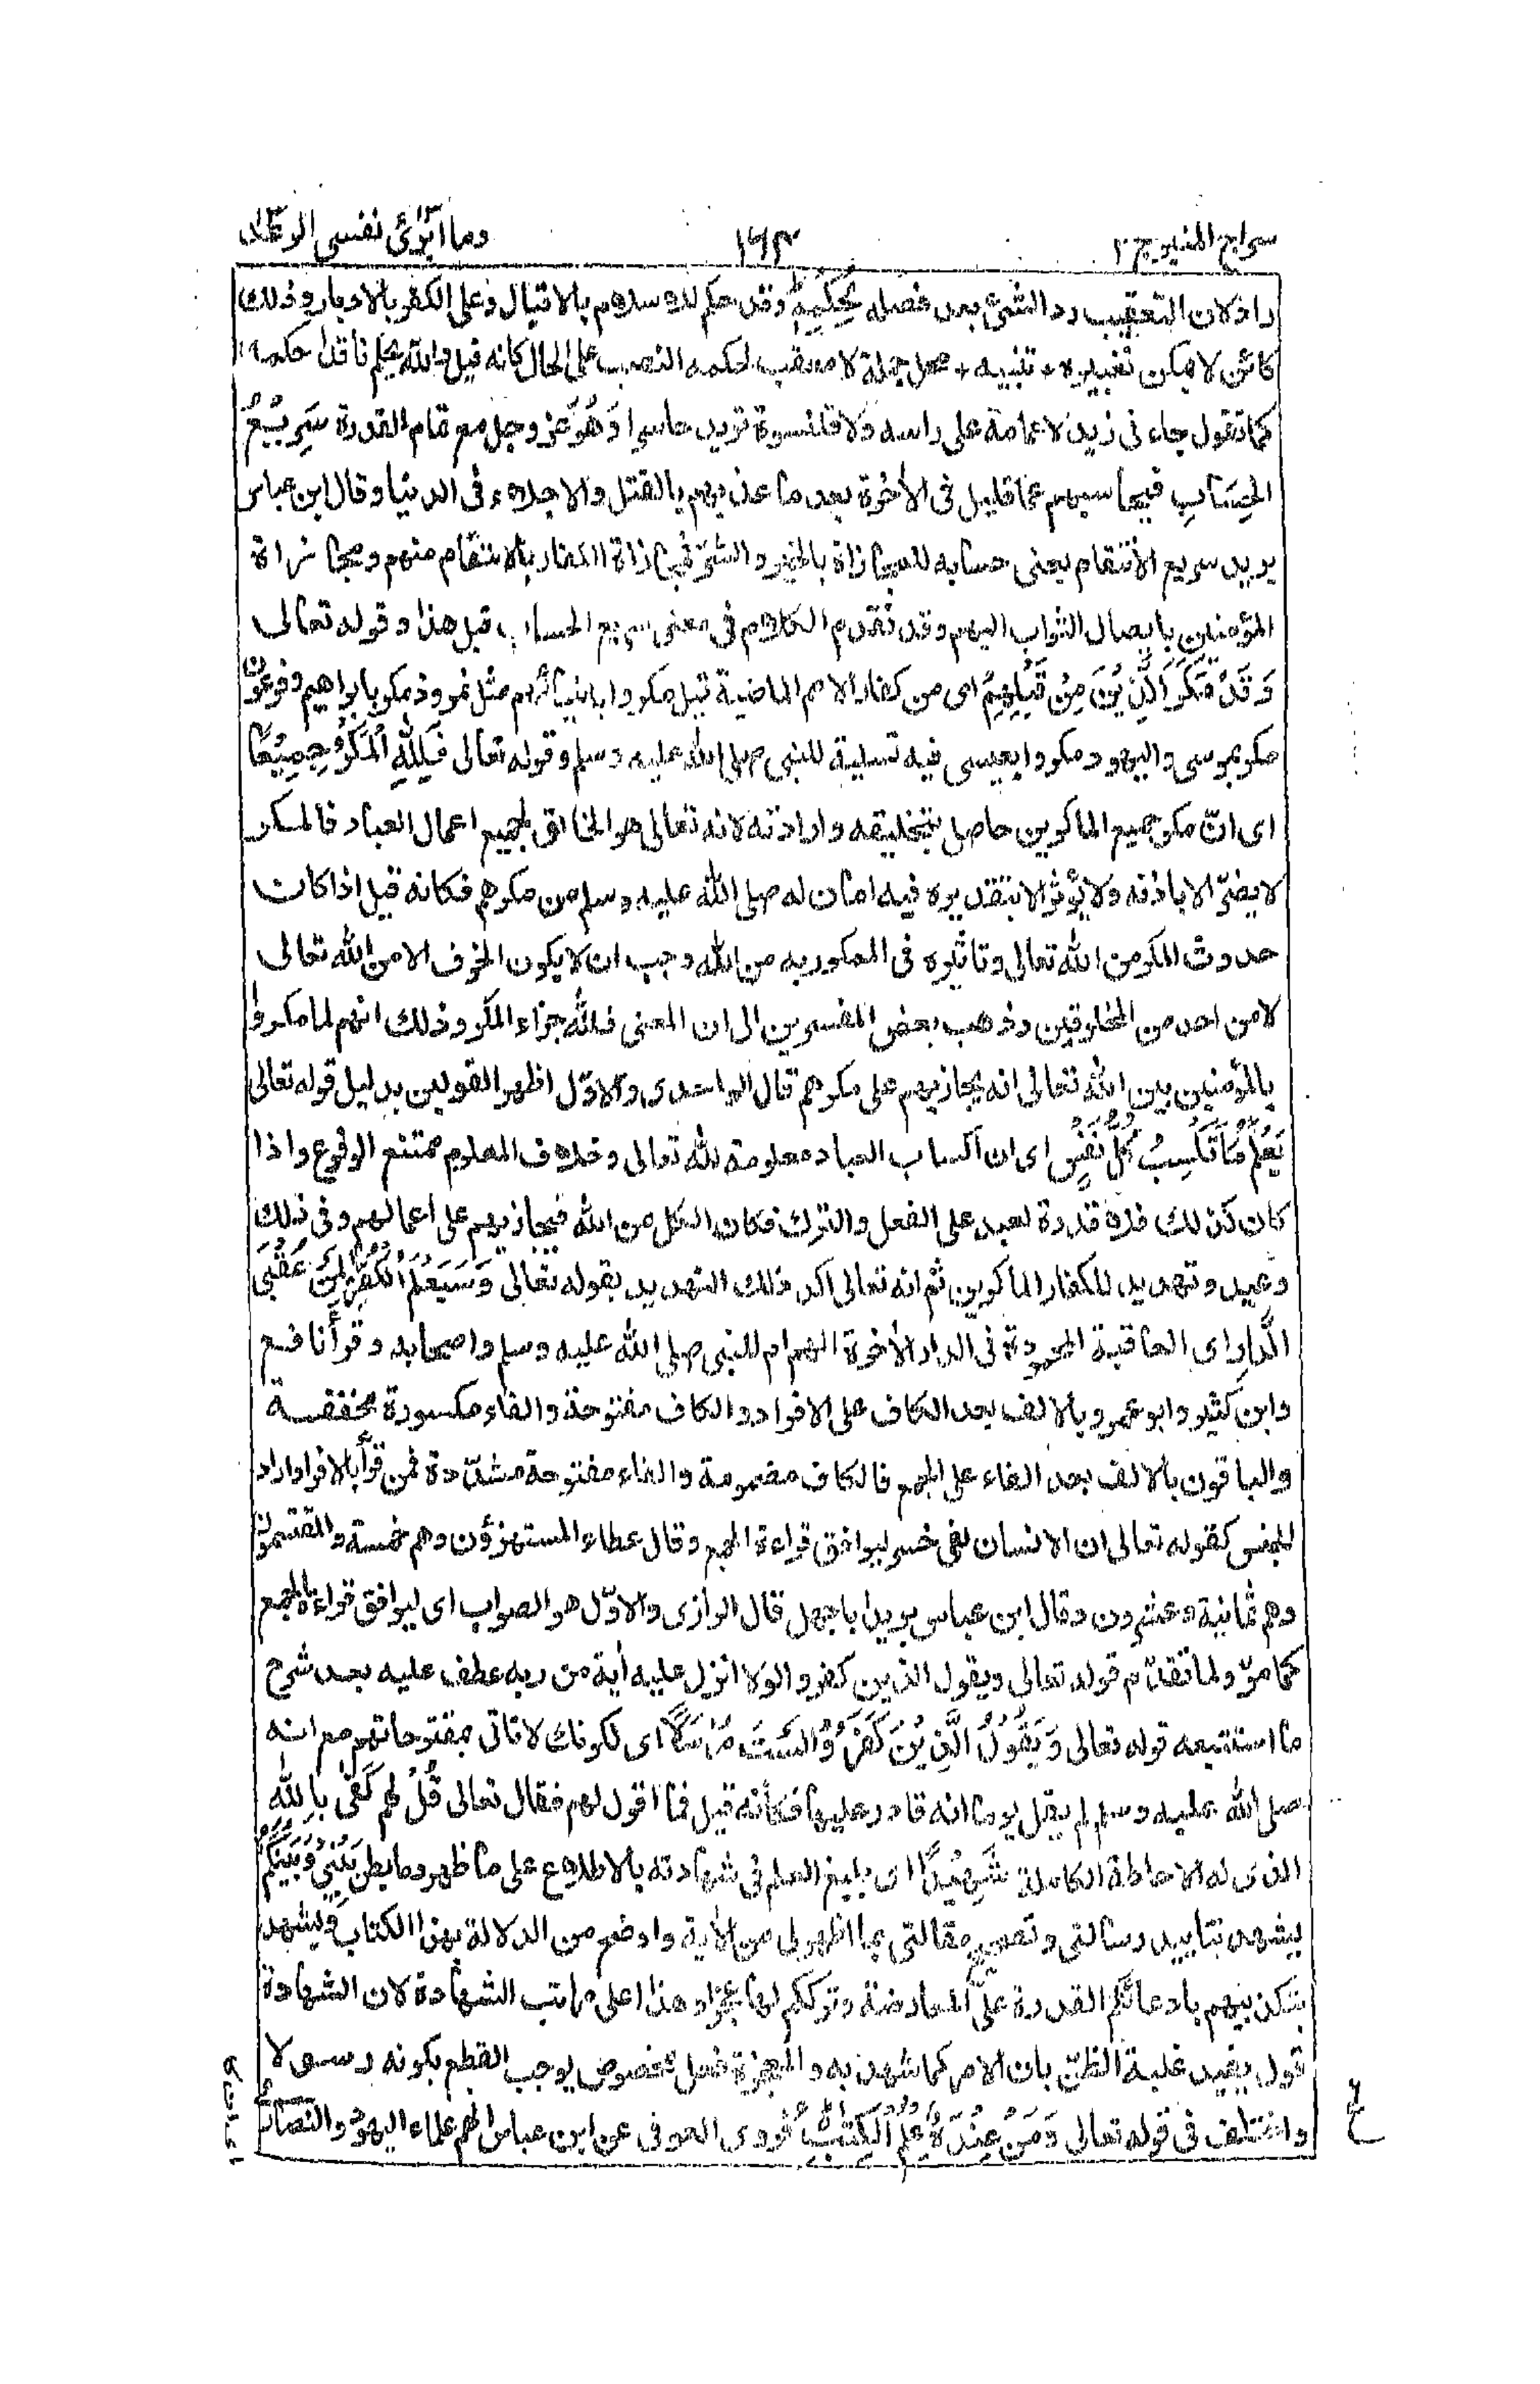 سراج المنیر ج ٢
١٦٣
وما ابرئ نفسی الرعد
راد لان التعقیب رد الشئ بعد فصله لِحُكْمِهٖ وقد حکم للاسلام بالاقبال وعلی الکفر بالادبار وذلك
کائن لا یمکن تغییره، تنبیه، محل جملة لا معقب لحکمه النصب علی الحال کانه قیل والله یحکم نافذا حکمه
کما تقول جاء نی زید لا عمامة علی راسه ولا قلنسوة ترید حاسرا وَهُوَ عز وجل مع تمام القدرة سَرِیْعُ
الْحِسَابِ فیحاسبهم عما قلیل فی الآخرة بعد ما عذبهم بالقتل والاجلاء فی الدنیا وقال ابن عباس
یرید سریع الانتقام یعنی حسابه للمجازاة بالخیر والشر فمجازاة الکفار بالانتقام منهم ومجازاة
المؤمنین بایصال الثواب الیهم وقد تقدم الکلام فی معنی سریع الحساب قبل هذا وقوله تعالی
وَقَدْ مَكَرَ الَّذِیْنَ مِنْ قَبْلِهِمْ ای من کفار الامم الماضیة قبل مکروا بانبیائهم مثل نمروذ مکر بابراهیم وفرعون
مکر بموسی والیهود مکروا بعیسی فیه تسلیة للنبی صلی الله علیه وسلم وقوله تعالی فَلِلّٰهِ الْمَكْرُ جَمِیْعًا
ای انّ مکر جمیع الماکرین حاصل بتخلیقه وارادته لانه تعالی هو الخالق لجمیع اعمال العباد فالمکر
لا یضرّ الا باذنه ولا یؤثر الا بتقدیره فیه امان له صلی الله علیه وسلم من مکرهم فکانه قیل اذا کان
حدوث المکر من الله تعالی وتاثیره فی الممکور به من الله وجب ان لا یکون الخوف الا من الله تعالی
لا من احد من المخلوقین وذهب بعض المفسرین الی ان المعنی فلله جزاء المکر وذلك انهم لما مکروا
بالمؤمنین بین الله تعالی انه یجازیهم علی مکرهم قال الواحدی والاوّل اظهر القولین بدلیل قوله تعالی
یَعْلَمُ مَا تَكْسِبُ كُلُّ نَفْسٍ ای ان اکساب العباد معلومة لله تعالی وخلاف المعلوم ممتنع الوقوع واذا
کان کذلك فلا قدرة لعبد علی الفعل والترك فکان الکل من الله فیجازیهم علی اعمالهم وفی ذلك
وعید وتهدید للکفار الماکرین ثم انه تعالی اکد ذلك التهدید بقوله تعالی وَسَیَعْلَمُ الْكُفّٰرُ لِمَنْ عُقْبَی
الدَّارِ ای العاقبة المحمودة فی الدار الآخرة الهم ام للنبی صلی الله علیه وسلم واصحابه وقرأ نافع
وابن کثیر وابو عمرو بالالف بعد الکاف علی الافراد والکاف مفتوحة والفاء مکسورة مخففة
والباقون بالالف بعد الفاء علی الجمع فالکاف مضمومة والفاء مفتوحة مشدّدة فمن قرأ بالافراد اراد
الجنس کقوله تعالی ان الانسان لفی خسر لیوافق قراءة الجمع وقال عطاء المستهزؤن وهم خمسة والمقتسمون
وهم ثمانیة وعشرون وقال ابن عباس یرید ابا جهل قال الرازی والاوّل هو الصواب ای لیوافق قراءة الجمع
کما مرّ ولما تقدّم قوله تعالی ویقول الذین کفروا لولا انزل علیه اٰیة من ربه عطف علیه بعد شرح
ما استتبعه قوله تعالی وَیَقُوْلُ الَّذِیْنَ كَفَرُوْا لَسْتَ مُرْسَلًا ای لکونك لا تاتی بمقترحاتهم مع انه
صلی الله علیه وسلم لم یقل یوما انه قادر علیها فکأنه قیل فما اقول لهم فقال تعالی قُلْ لهم كَفٰی بِاللّٰهِ
الذی له الاحاطة الکاملة شَهِیْدًا ای بلیغ العلم فی شهادته بالاطلاع علی ما ظهر وما بطن بَیْنِیْ وَبَیْنَكُمْ
یشهد بتایید رسالتی وتصحیح مقالتی بما اظهر لی من الآیة واوضح من الدلالة بهذا الکتاب ویشهد
بتکذیبهم بادعائکم القدرة علی المعارضة وترککم لها عجزا وهذا اعلی مراتب الشهادة لان الشهادة
قول یفید غلبة الظنّ بان الامر کما شهد به والمعجزة فعل مخصوص یوجب القطع بکونه رسولا
واختلف فی قوله تعالی وَمَنْ عِنْدَهٗ عِلْمُ الْكِتٰبِ فروی العوفی عن ابن عباس انهم علماء الیهود والنصاری
ع